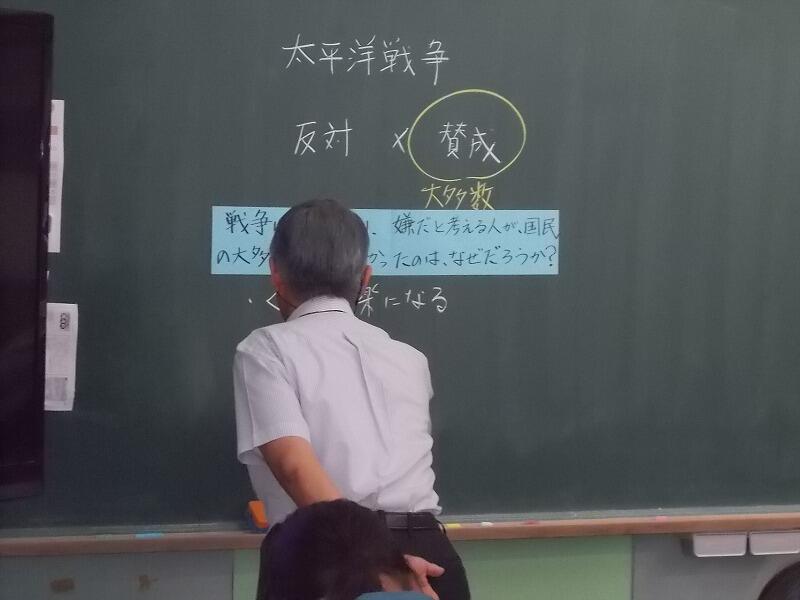 太平洋戦争
反対 × 賛成
大多数
戦争 嫌だと考える人が、国民
の大多 かったのは、なぜだろうか?
・く 楽になる